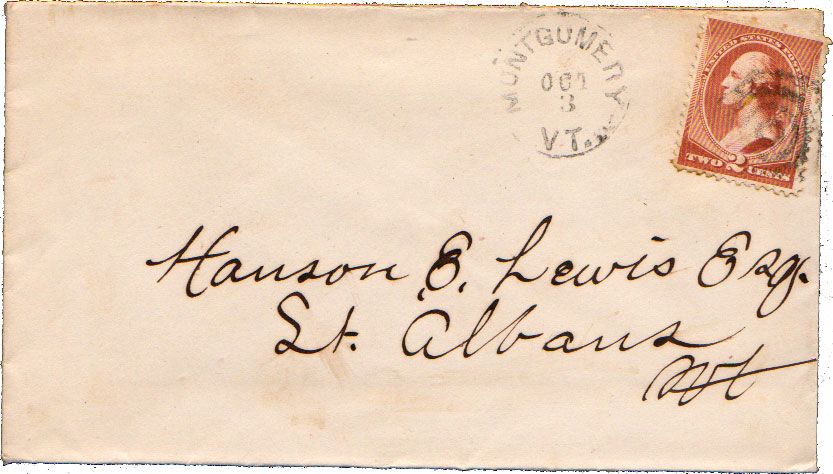 MONTGOMERY
OCT
3
VT.
UNITED STATES POST
TWO 2 CENTS
Hanson E. Lewis Esq.
St. Albans
Vt